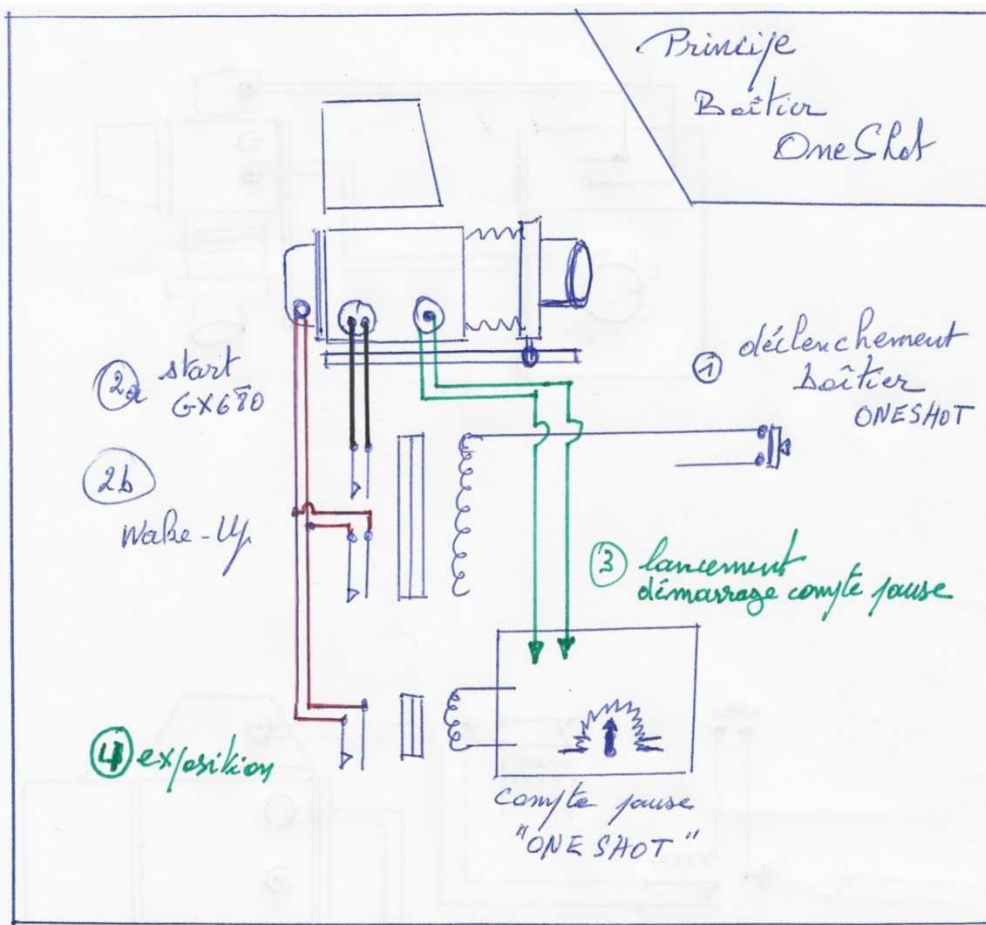 Principe
Boîtier
OneShot
1 déclenchement
boîtier
ONESHOT
2a start
GX680
2b
Wake-Up
3 lancement
démarrage compte pause
4 exposition
compte pause
"ONE SHOT"